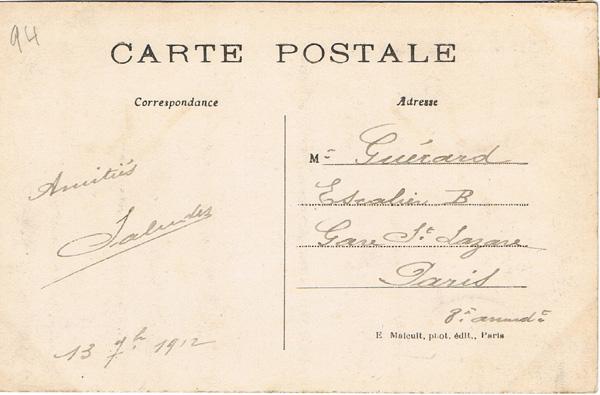 94
CARTE POSTALE
Correspondance
Adresse
Amitiés
13 7bre 1912
Mr Guérard
Escalier B
Gare St Lazare
Paris
8e arrondt
E. Malcuit, phot. édit., Paris